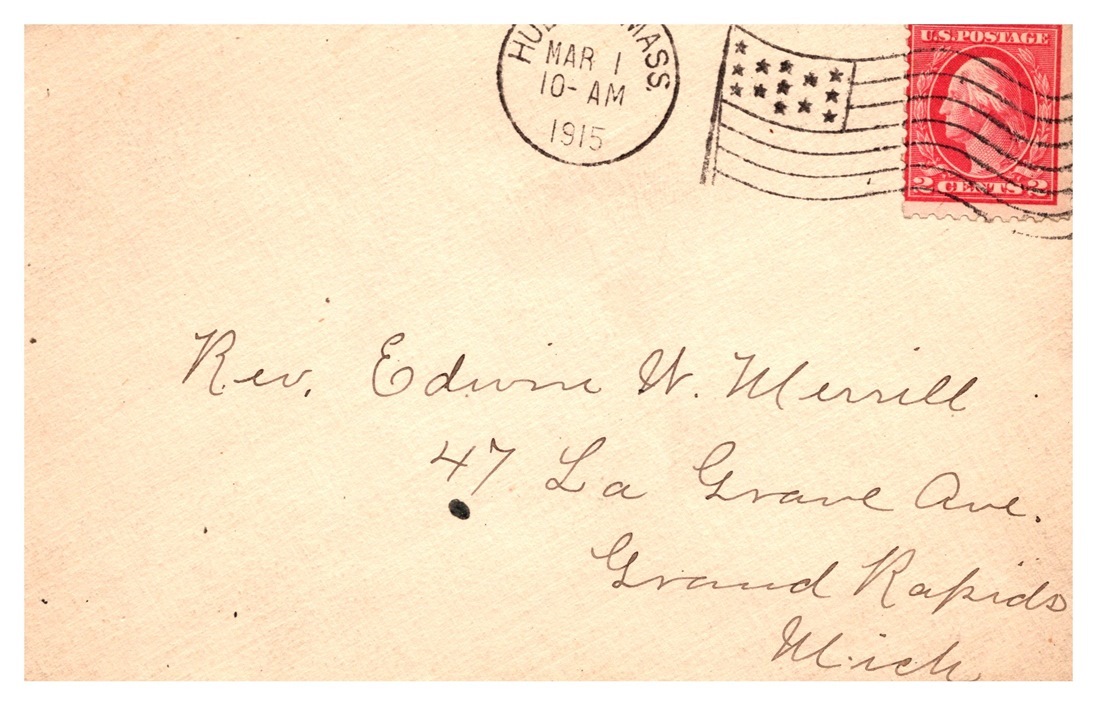 MASS.
MAR 1
10-AM
1915
U.S. POSTAGE
2 CENTS 2
Rev. Edwin W. Merrill
47 La Grave Ave.
Grand Rapids
Mich